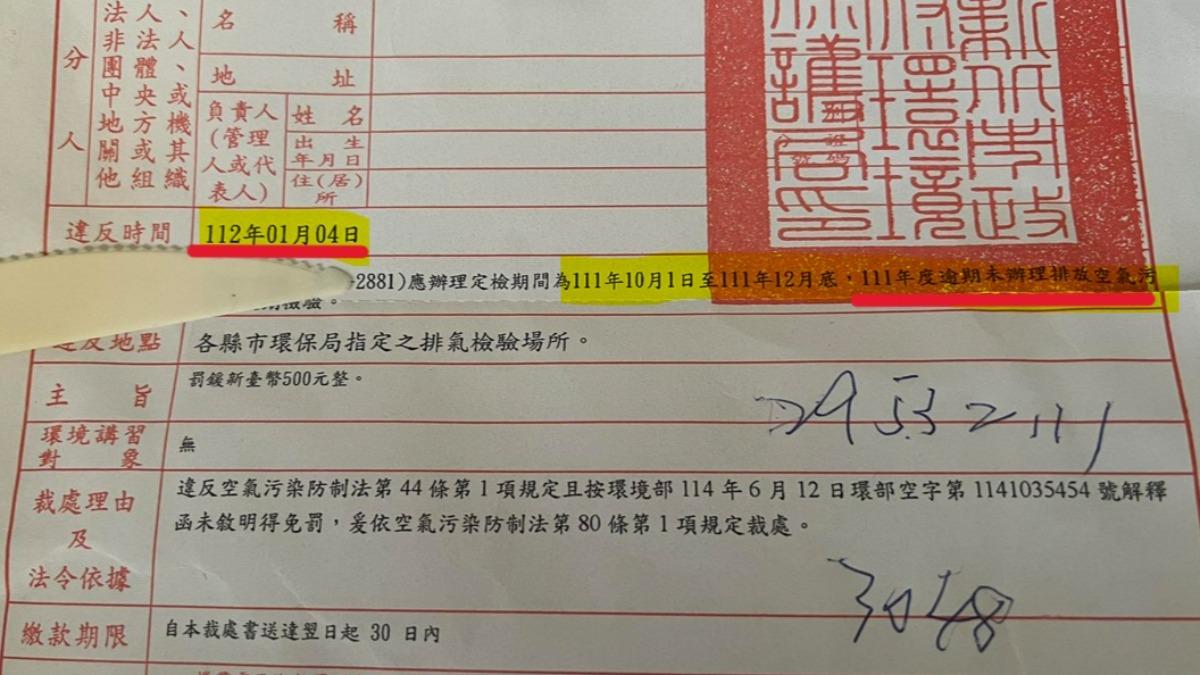 分
人
法人、
非法人、
團體、
中央或
地方機
關或其
他組織
名稱
地址
負責人
(管理
人或代
表人)
姓名
出生
年月日
住(居)
所
違反時間
112年01月04日
-2881)應辦理定檢期間為111年10月1日至111年12月底,111年度逾期未辦理排放空氣污
檢驗。
違反地點
各縣市環保局指定之排氣檢驗場所。
主旨
罰鍰新臺幣500元整。
環境講習
對象
無
裁處理由
及
法令依據
違反空氣污染防制法第44條第1項規定且按環境部114年6月12日環部空字第1141035454號解釋
函未敘明得免罰,爰依空氣污染防制法第80條第1項規定裁處。
繳款期限
自本裁處書送達翌日起 30 日內
29532111
3048